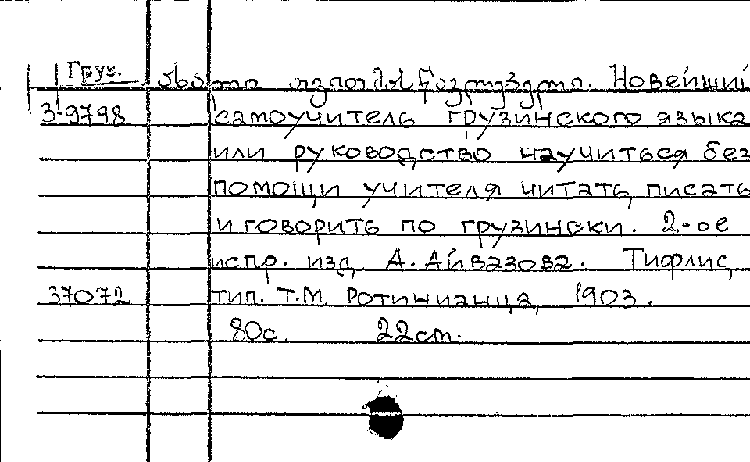 Груз. ახალი თვითმასწავლებელი. Новейший
3-9798 самоучитель грузинского языка
или руководство научиться без
помощи учителя читать, писать
и говорить по грузински. 2-ое
испр. изд. А. Айвазова. Тифлис,
37072 тип. Т.М. Ротинианца, 1903.
80с. 22см.